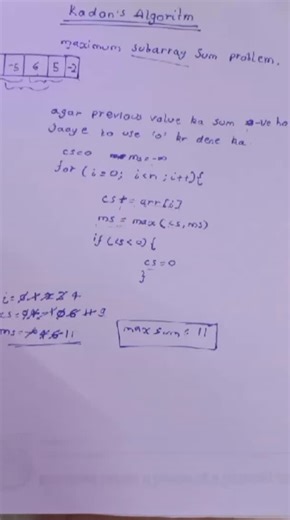 Kadan's Algoritm
maximum subarray sum problem.
-5 6 5 -2
agar previous value ka sum -ve ho
jaaye to use '0' kr dene ka
cs=0 ms=-∞
for (i=0; i<n; i++){
cs += arr[i]
ms = max(cs, ms)
if (cs<0){
cs=0
}
i=
cs=
ms=
max sum = 11